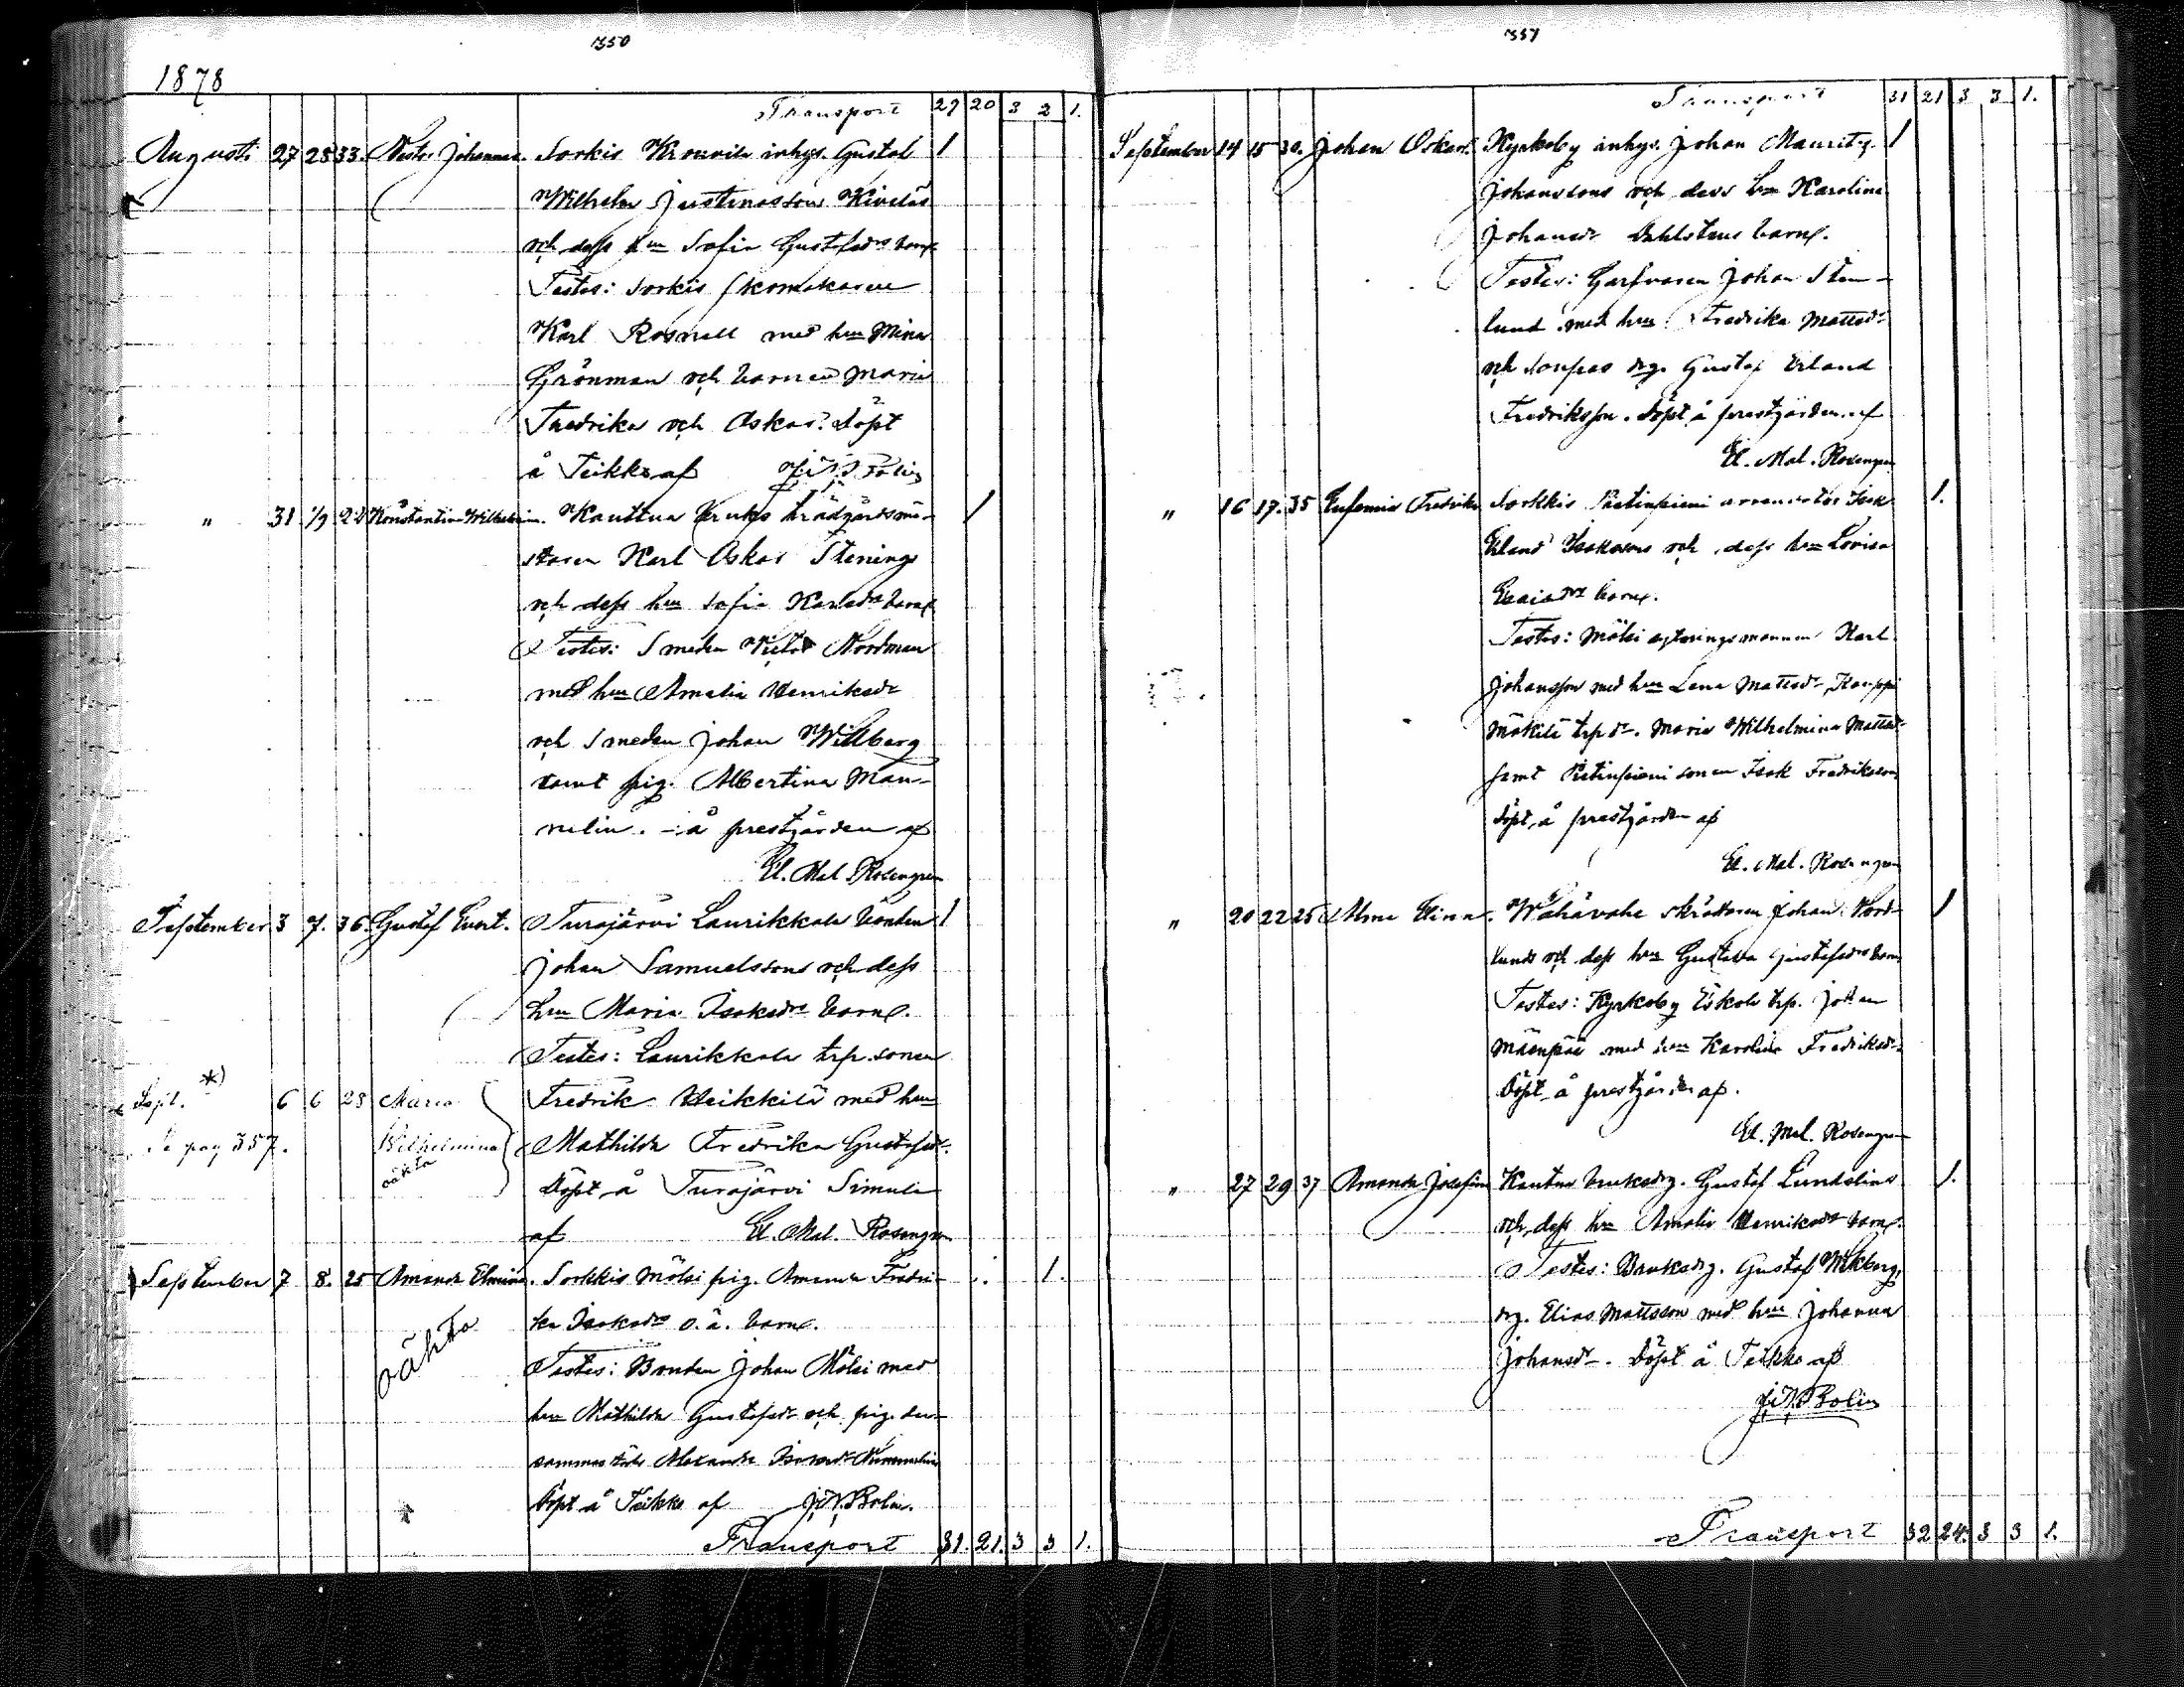 350
1878
Transport 29 20 3 2 1.
Augusti 27 28 33. Nestor Johannes. Sorkis Krouvila inhys. Gustaf 1
Wilhelm Justinassons Kiviläs
och dess hu Sofia Gustafsdrs barn
Testes: Sorkis skomakaren
Karl Rosnell med hu Mina
Grönman och barnen Maria
Fredrika och Oskar. Döpt
å Teikko af J.N. Bolin
" 31 1/9 28 Konstantin Wilhelm. Kauttua bruks trädgårdsmä- 1
staren Karl Oskar Stenings
och dess hu Sofia Karlsdrs barn
Testes: Smeden Viktor Nordman
med hu Amalia Henriksdr
och Smeden Johan Willberg
samt pig. Albertina Man-
nelin. – å prestgården af
El. Mal. Rosengren
September 3 7. 36. Gustaf Evert. Turajärvi Laurikkala bonden 1
Johan Samuelssons och dess
hu Maria Isaksdrs barn.
Testes: Laurikkala trp. sonen
Sept. *) 6 6 28 Maria Fredrik Heikkilä med hu
Se pag 357. Wilhelmina Mathilda Fredrika Gustafsdr.
oäkta Döpt å Turajärvi Simula
af El. Mal. Rosengren
September 7 8. 25 Amanda Elmina. Sorkkis Mölsi pig. Amanda Fredri- 1.
ka Isaksdrs o.ä. barn.
oäkta Testes: Bonden Johan Mölsi med
hu Mathilda Gustafsdr och pig. der-
sammastäds Alexandra Nummelin
Döpt å Teikko af J.N. Bolin.
Transport 31. 21. 3 3 1.
351
Transport 31 21 3 3 1.
September 14 15 30. Johan Oskar. Kyrkoby inhys. Johan Mauritz 1
Johanssons och dess hu Karolina
Johansdr Dahlstens barn.
Testes: Garfvaren Johan Sten-
lund med hu Fredrika Mattsdr
och drg. Gustaf Erland
Fredriksson. Döpt å prestgården af
El. Mal. Rosengren
" 16 17. 35 Eufemia Fredrika Sorkkis Pietinpieni arrendator Isak 1.
Erland Isakssons och dess hu Lovisa
Esaiadrs barn.
Testes: Mölsi Karl
Johansson med hu Lena Mattsdr, Kauppi
Mäkilä trp dr. Maria Wilhelmina Mattsdr
samt Pietinpieni sonen Isak Fredriksson
Döpt å prestgården af
El. Mal. Rosengren
" 20 22 25 Alma Elina. Wähävahe skräddaren Johan Nord- 1
lunds och dess hu Gustava Gustafsdrs barn
Testes: Kyrkoby Eskola trp. Johan
Mäenpää med hu Karolina Fredriksdr.
Döpt å prestgården af.
El. Mal. Rosengren
" 27 29 37 Amanda Josefina Kauttua bruksdrg. Gustaf Lundelins 1.
och dess hu Amalia Henriksdrs barn.
Testes: Bruksdrg. Gustaf Wikberg,
drg. Elias Mattsson med hu Johanna
Johansdr. Döpt å Teikko af
J.N. Bolin
Transport 32 24. 3 3 1.